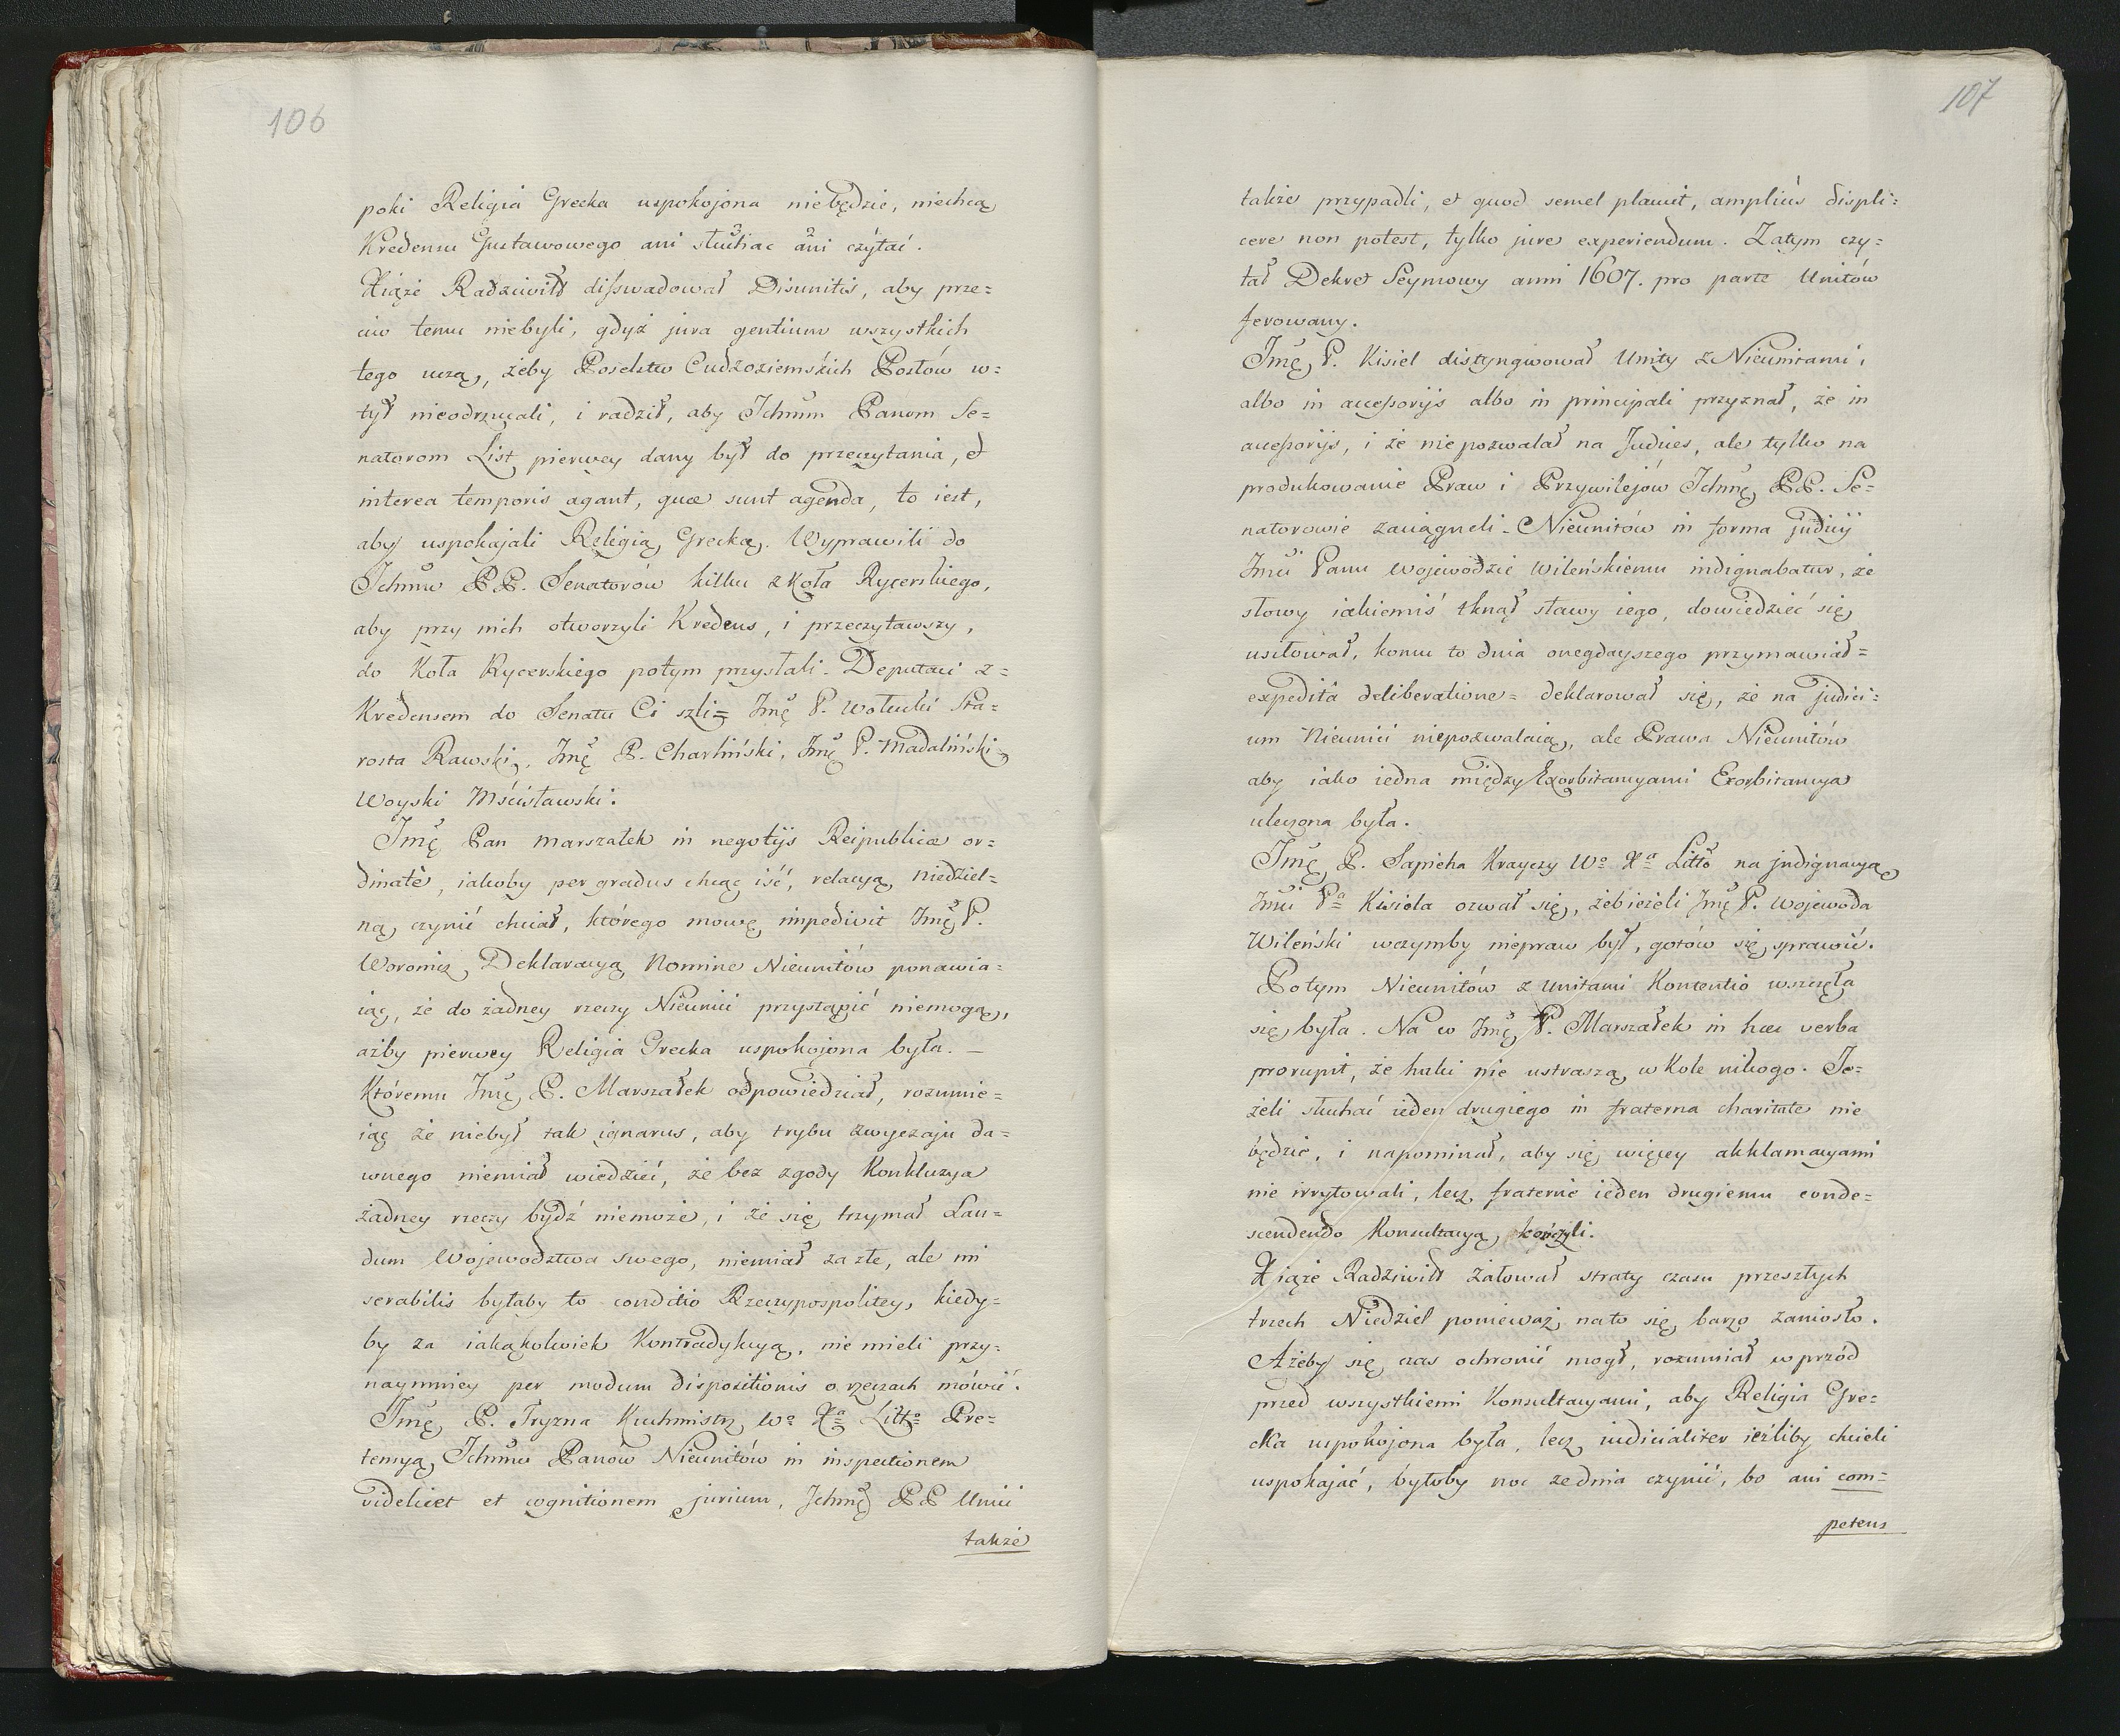 106
poki Religia Grecka uspokojona niebędzie, niechcą
Kredensu Gustawowego ani słuchac ani czytać.
Xiąże Radziwiłł disswadował Disunitis, aby prze=
ciw temu niebyli, gdyż jura gentium wszystkich
tego uczą, żeby Poselstw Cudzoziemskich Posłów w=
tył nieodrzucali, i radził, aby Ichmm Panom Se=
natorom List pierwey dany był do przeczytania, et
interea temporis agant, quæ sunt agenda, to iest,
aby uspokajali Religią Grecką. Wyprawili do
Ichmw PP. Senatorów kilku z Koła Rycerskiego,
aby przy nich otworzyli Kredens, i przeczytawszy,
do Koła Rycerskiego potym przysłali. Deputaci z=
Kredensem do Senatu Ci szli= Jmę P. Wołucki Sta=
rosta Rawski, Jmę P. Charliński, Jmę P. Madaliński
Woyski Mścisławski.
Jmę Pan Marszałek in negotijs Reipublicæ or=
dinatè, iakoby per gradus chcąc iść, relacyą niedziel=
ną czynić chciał, którego mowę impedivit Jmę P.
Woronicz Deklaracyą Nomine Nieunitów ponawia=
iąc, że do żadney rzeczy Nieunici przystąpić niemogą,
ażby pierwey Religia Grecka uspokojona była. —
Któremu Jmę P. Marszałek odpowiedział, rozumie=
iąc że niebył tak ignarus, aby trybu zwyczaju da=
wnego niemiał wiedzieć, że bez zgody Konkluzya
żadney rzeczy bydź niemoże, i że się trzymał Lau=
dum Województwa swego, niemiał za złe, ale mi
serabilis byłaby to conditio Rzeczypospolitey, kiedy=
by za iakąkolwiek Kontradykcyą, nie mieli przy=
naymniey per modum dispozitionis o rzeczach mówić.
Jmę P. Tryzna Kuchmistrz Wo Xa Litto Pre=
tensyą Ichmw Panów Nieunitów in inspectionem
videlicet et cognitionem jurium, Ichmę PP Unici
także
107
także przypadli, et quod semel placuit, ampliùs displi=
cere non potest, tylko jure experiendum. Zatym czy=
tał Dekret Seymowy anni 1607. pro parte Unitów
ferowany.
Jmę P. Kisiel distyngwował Unity z Nieunitami,
albo in accessorijs albo in principali przyznał, że in
accessorijs, i że nie pozwalał na Judices, ale tylko na
produkowanie Praw i Przywilejów Ichmę PP. Se=
natorowie zaciągneli. Nieunitów in forma judicij
Jmći Panu Wojewodzie Wileńskiemu indignabatur, że
słowy iakiemiś tknął sławy iego, dowiedzieć się
usiłował, komu to dnia onegdayszego przymawiał=
expeditâ deliberatione= deklarował się, że na judici=
um Nieunici niepozwalaią, ale Prawa Nieunitów
aby iako iedna między Exorbitancyami Exorbitancya
uleczona była.
Jmę P. Sapieha Krayczy Wo Xa Litto na jndignacyą
Jmći Pa Kisiela ozwał się, żebieżeli Jmę P. Wojewoda
Wileński wczymby niepraw był, gotów się sprawić.
Potym Nieunitów z Unitami Kontentio wszczęła
się była. Na co Jmę P. Marszałek in hæc verba
prorupit, że huki nie ustraszą w Kole nikogo. Je=
żeli słuchać ieden drugiego in fraterna charitate nie
będzie, i napominał, aby się więcey akklamacyami
nie irrytowali, lecz fraternè ieden drugiemu conde=
scendendo Konsultacyą kończyli.
Xiąże Radziwiłł żałował straty czasu przeszłych
trzech Niedziel ponieważ nato się barzo zaniosło.
Ażeby się czas ochronić mogł, rozumiał wprzód
przed wszystkiemi Konsultacyami, aby Religia Gre=
cka uspokojona była, lecz iudicialiter ieźliby chcieli
uspokajać, byłoby noc ze dnia czynić, bo ani com=
petens